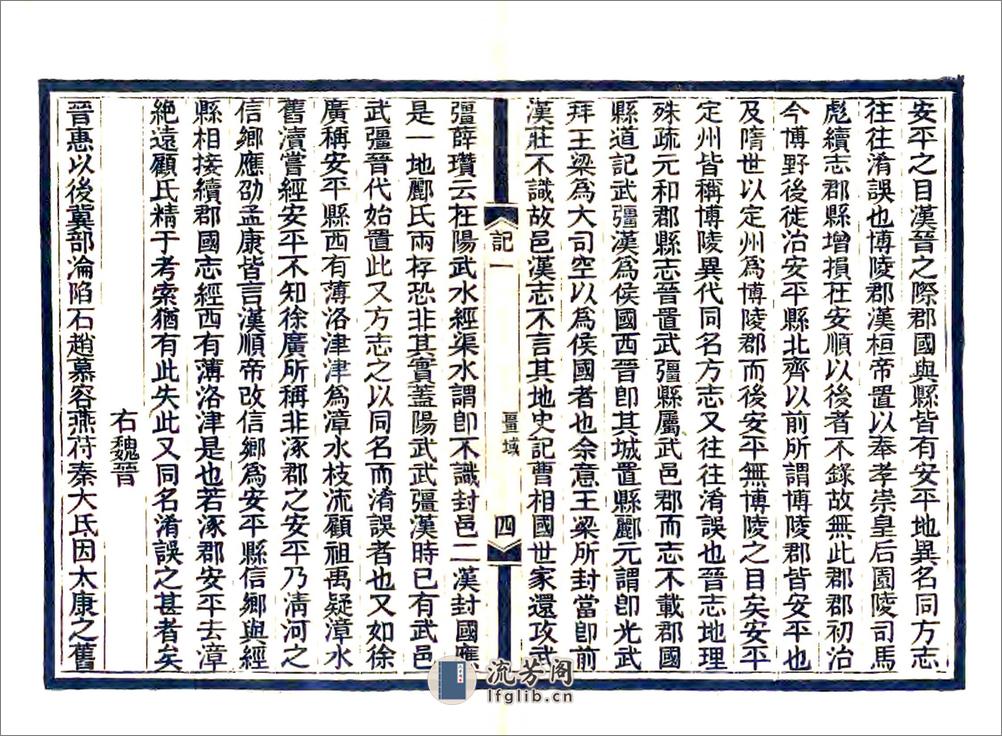 安平之目漢晉之際郡國與縣皆有安平地異名同方志
往往淆誤也博陵郡漢桓帝置以奉孝崇皇后園陵司馬
彪續志郡縣增損在安順以後者不錄故無此郡郡初治
今博野後徙治安平縣北齊以前所謂博陵郡皆安平也
及隋世以定州爲博陵郡而後安平無博陵之目矣安平
定州皆稱博陵異代同名方志又往往淆誤也晉志地理
殊疏元和郡縣志晉置武彊縣屬武邑郡而志不載郡國
縣道記武彊漢爲侯國西晉卽其城置縣酈元謂卽光武
拜王梁爲大司空以爲侯國者也余意王梁所封當卽前
漢莊不識故邑漢志不言其地史記曹相國世家還攻武
記一
畺域
四
彊薛瓚云在陽武水經渠水謂卽不識封邑二漢封國應
是一地酈氏兩存恐非其實蓋陽武武彊漢時已有武邑
武彊晉代始置此又方志之以同名而淆誤者也又如徐
廣稱安平縣西有薄洛津津爲漳水枝流顧祖禹疑漳水
舊瀆嘗經安平不知徐廣所稱非涿郡之安平乃淸河之
信鄉應劭孟康皆言漢順帝改信鄉爲安平縣信鄉與經
縣相接續郡國志經西有薄洛津是也若涿郡安平去漳
絕遠顧氏精于考索猶有此失此又同名淆誤之甚者矣
右魏晉
晉惠以後冀部淪陷石趙慕容燕苻秦大氐因太康之舊
流芳阁
lfglib.cn